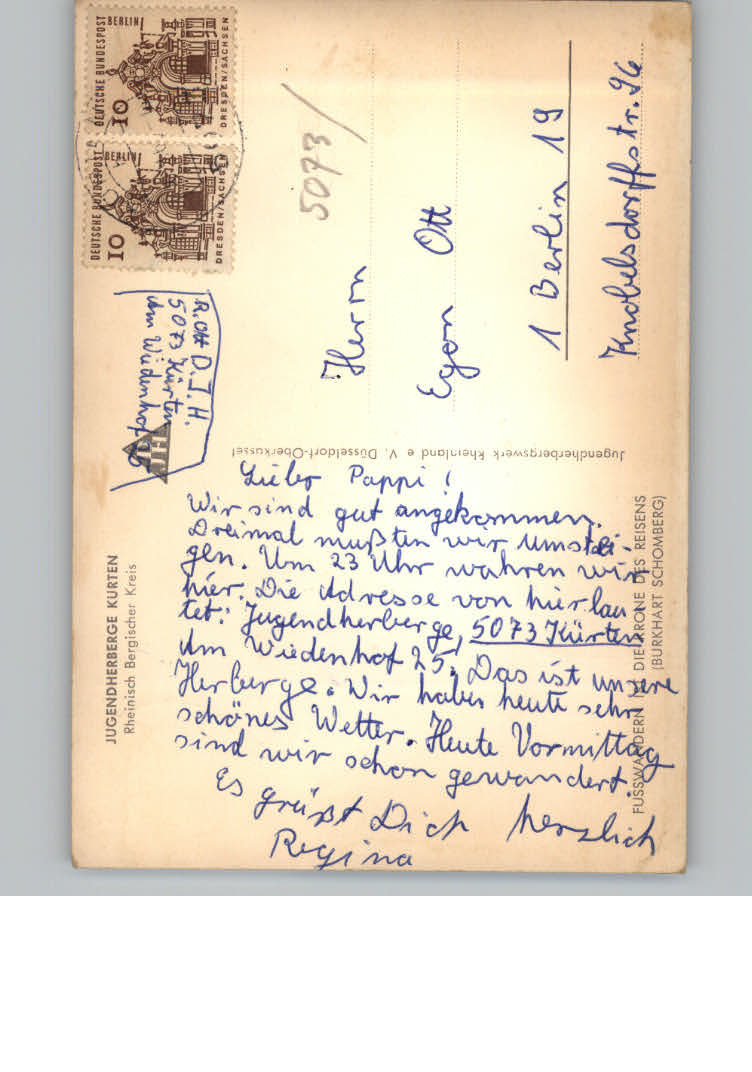 JUGENDHERBERGE KÜRTEN
Rheinisch Bergischer Kreis
Lieber Pappi!
Wir sind gut angekommen.
Dreimal mußten wir Umstei-
gen. Um 23 Uhr wahren wir
hier. Die Adresse von hier lau
tet: Jugendherberge, 5073 Kürten
Am Wiedenhof 25, Das ist unsere
Herberge. Wir haben heute sehr
schönes Wetter. Heute Vormittag
sind wir schon gewandert.
Es grüßt Dich herzlich
Regina
FUSSWANDERN IST DIE KRONE DES REISENS
(BURKHART SCHOMBERG)
Jugendherbergswerk Rheinland e. V. Düsseldorf-Oberkassel
R. Ott D.J.H.
5073 Kürten
Am Wiedenhof 25
JH
DEUTSCHE BUNDESPOST
BERLIN
10
DRESDEN/SACHSEN
DEUTSCHE BUNDESPOST
BERLIN
10
DRESDEN/SACHSEN
5073/
Herrn
Egon Ott
1 Berlin 19
Knobelsdorffstr. 96